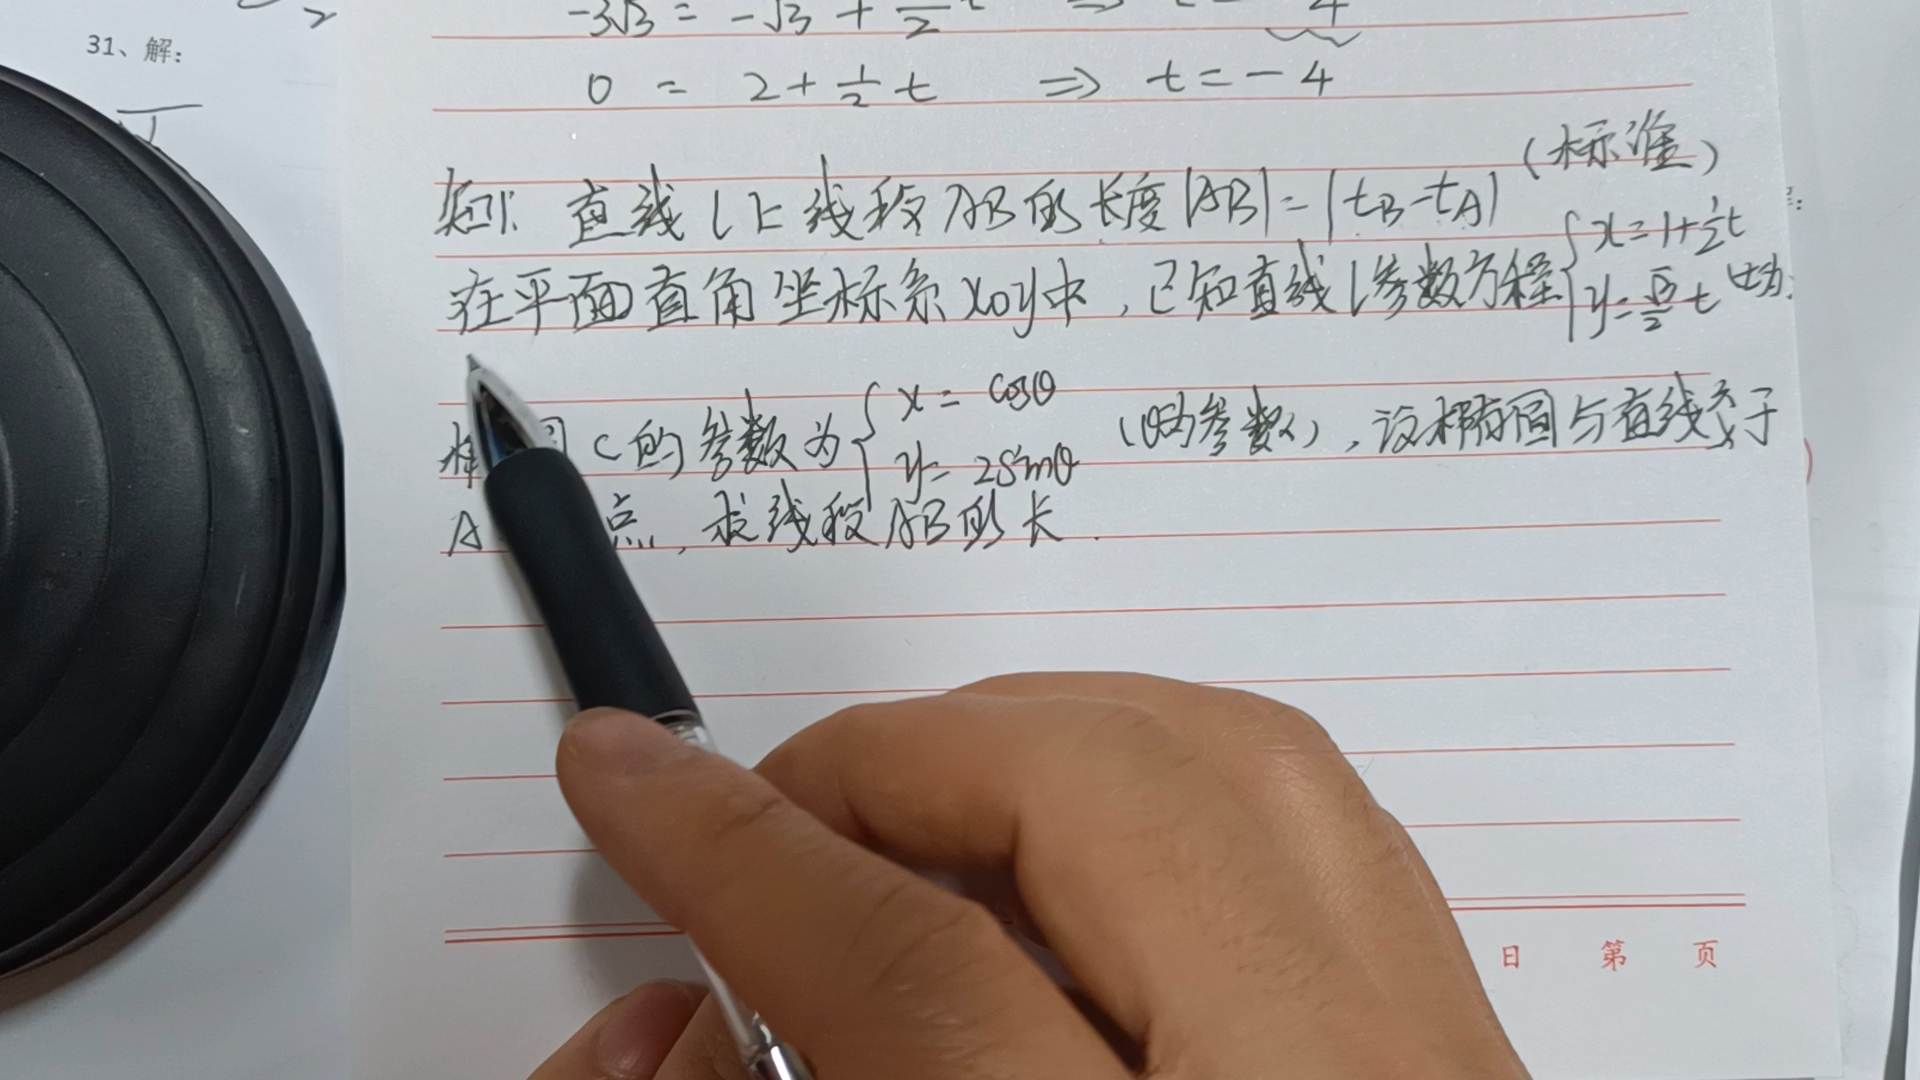 31、解:
-3√3 = -√3 + t ⇒ t = -4
0 = 2 + 1/2 t ⇒ t = -4
直线l上线段AB的长度|AB| = |tB-tA| (标准)
在平面直角坐标系xoy中,已知直线l参数方程{x=1+1/2t y=√3/2 t (t为
C的参数为{x=cosθ y=2sinθ (θ为参数),设椭圆与直线交于
A 点,求线段AB的长.
日 第 页